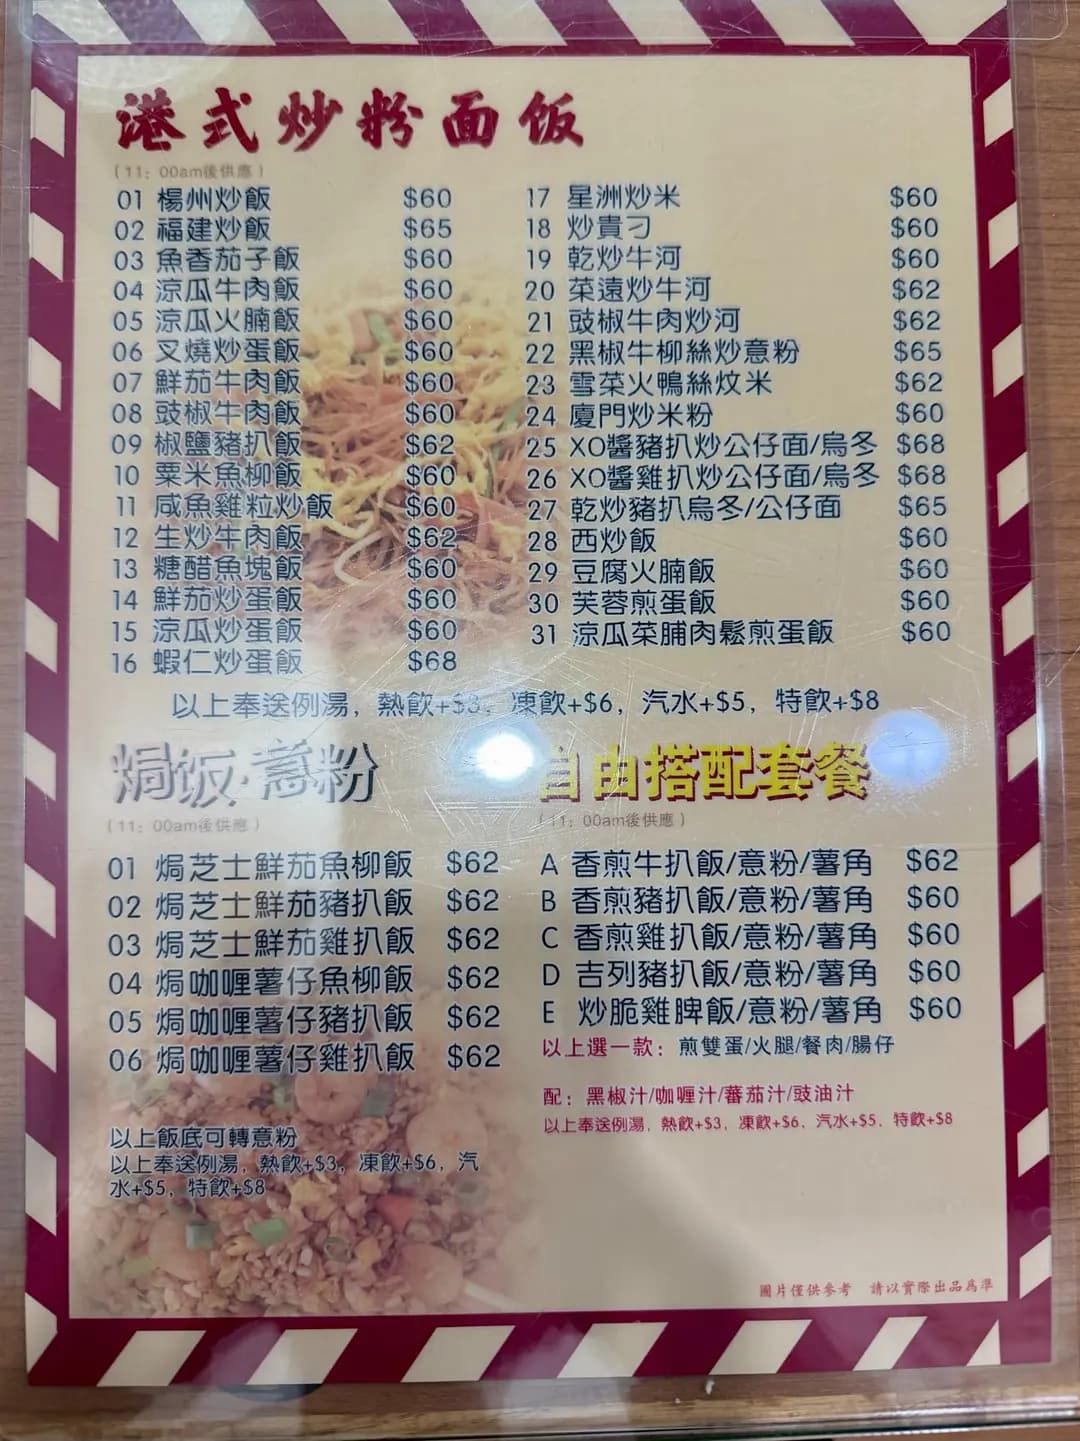 港式炒粉面饭
（11：00am後供應）
01 楊州炒飯 $60
02 福建炒飯 $65
03 魚香茄子飯 $60
04 涼瓜牛肉飯 $60
05 涼瓜火腩飯 $60
06 叉燒炒蛋飯 $60
07 鮮茄牛肉飯 $60
08 豉椒牛肉飯 $60
09 椒鹽豬扒飯 $62
10 粟米魚柳飯 $60
11 咸魚雞粒炒飯 $60
12 生炒牛肉飯 $62
13 糖醋魚塊飯 $60
14 鮮茄炒蛋飯 $60
15 涼瓜炒蛋飯 $60
16 蝦仁炒蛋飯 $68
17 星洲炒米 $60
18 炒貴刁 $60
19 乾炒牛河 $60
20 菜遠炒牛河 $62
21 豉椒牛肉炒河 $62
22 黑椒牛柳絲炒意粉 $65
23 雪菜火鴨絲炆米 $62
24 廈門炒米粉 $60
25 XO醬豬扒炒公仔面/烏冬 $68
26 XO醬雞扒炒公仔面/烏冬 $68
27 乾炒豬扒烏冬/公仔面 $65
28 西炒飯 $60
29 豆腐火腩飯 $60
30 芙蓉煎蛋飯 $60
31 涼瓜菜脯肉鬆煎蛋飯 $60
以上奉送例湯，熱飲+$3，凍飲+$6，汽水+$5，特飲+$8
焗饭·意粉
（11：00am後供應）
01 焗芝士鮮茄魚柳飯 $62
02 焗芝士鮮茄豬扒飯 $62
03 焗芝士鮮茄雞扒飯 $62
04 焗咖喱薯仔魚柳飯 $62
05 焗咖喱薯仔豬扒飯 $62
06 焗咖喱薯仔雞扒飯 $62
以上飯底可轉意粉
以上奉送例湯，熱飲+$3，凍飲+$6，汽
水+$5，特飲+$8
自由搭配套餐
（11：00am後供應）
A 香煎牛扒飯/意粉/薯角 $62
B 香煎豬扒飯/意粉/薯角 $60
C 香煎雞扒飯/意粉/薯角 $60
D 吉列豬扒飯/意粉/薯角 $60
E 炒脆雞脾飯/意粉/薯角 $60
以上選一款：煎雙蛋/火腿/餐肉/腸仔
配：黑椒汁/咖喱汁/蕃茄汁/豉油汁
以上奉送例湯，熱飲+$3，凍飲+$6，汽水+$5，特飲+$8
圖片僅供參考 請以實際出品爲準